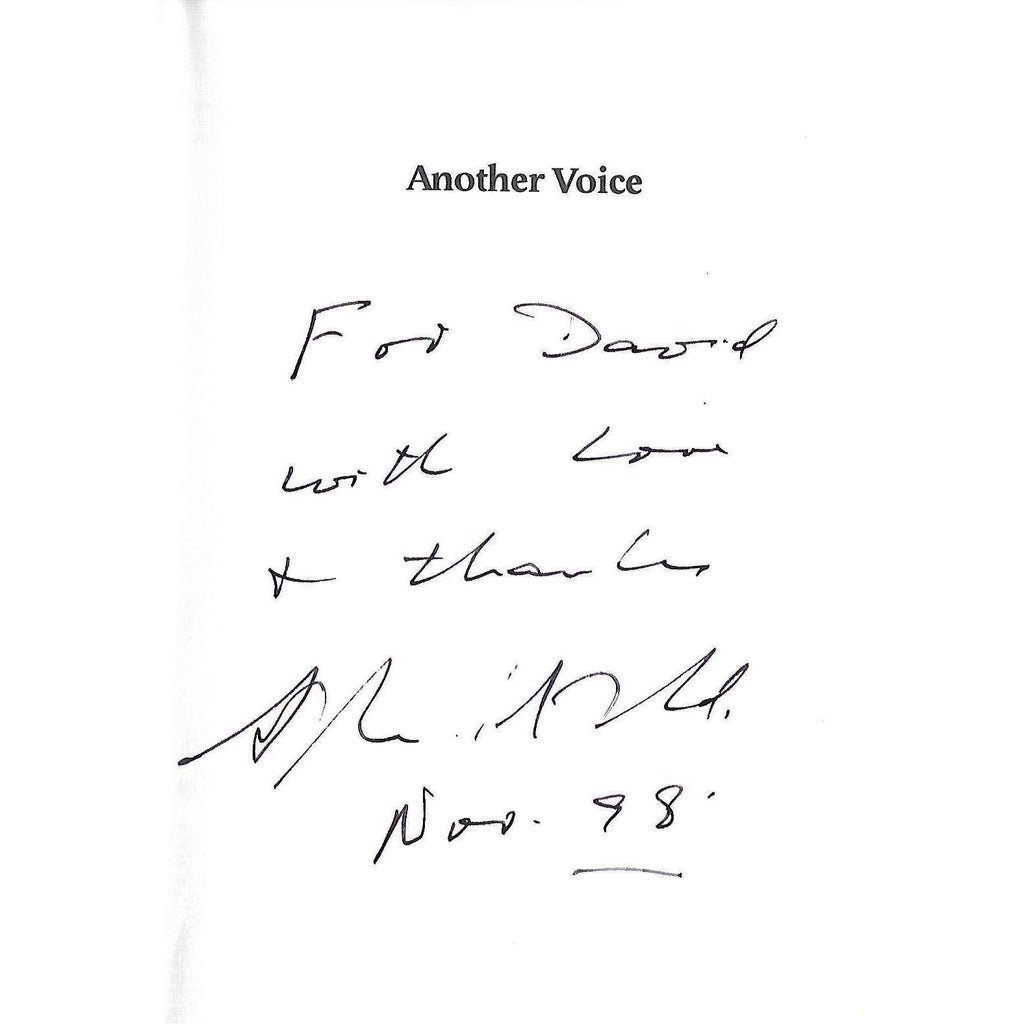 Another Voice
For David
with love
+ thanks
Nov. 98.